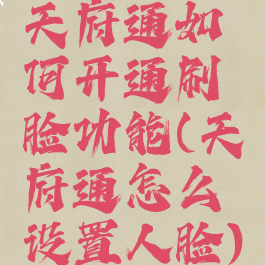 天府通如
何开通刷
脸功能(天
府通怎么
设置人脸)